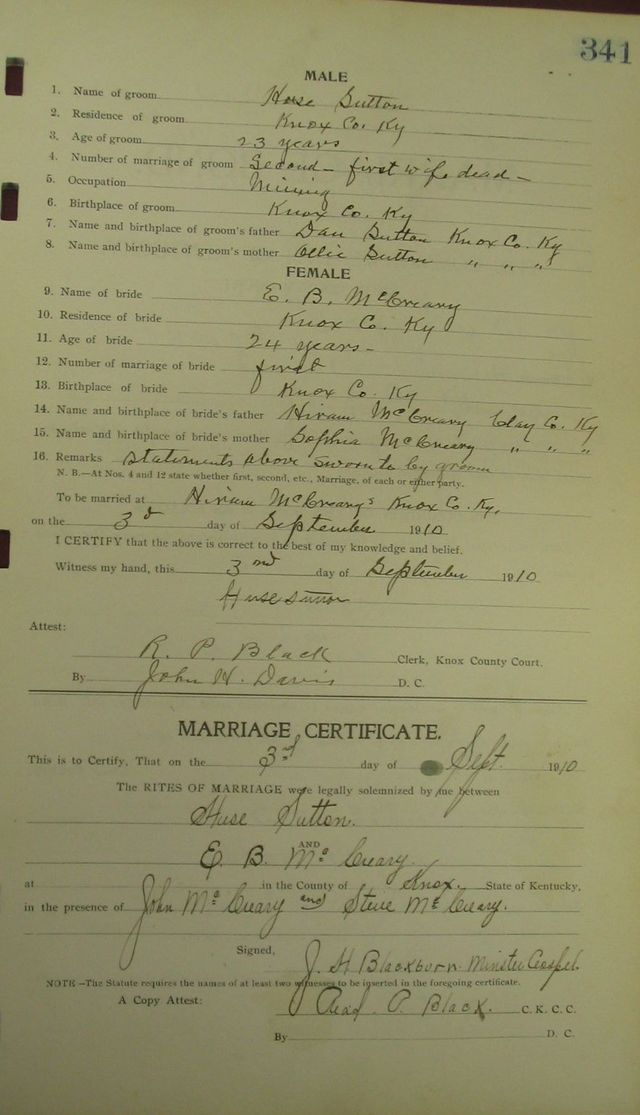 341
MALE
1. Name of groom Huse Sutton
2. Residence of groom Knox Co. Ky
3. Age of groom 23 years
4. Number of marriage of groom Second - first wife dead -
5. Occupation Mining
6. Birthplace of groom Knox Co. Ky
7. Name and birthplace of groom's father Dan Sutton Knox Co. Ky
8. Name and birthplace of groom's mother Ollie Sutton " " "
FEMALE
9. Name of bride E. B. McCreary
10. Residence of bride Knox Co. Ky
11. Age of bride 24 years -
12. Number of marriage of bride first
13. Birthplace of bride Knox Co. Ky
14. Name and birthplace of bride's father Hiram McCreary Clay Co. Ky
15. Name and birthplace of bride's mother Sophia McCreary " " "
16. Remarks statements above sworn to by groom
N. B.—At Nos. 4 and 12 state whether first, second, etc., Marriage, of each or either party.
To be married at Hiram McCreary's Knox Co. Ky,
on the 3d day of September 1910
I CERTIFY that the above is correct to the best of my knowledge and belief.
Witness my hand, this 3nd day of September 1910
Huse Sutton
Attest:
R. P. Black Clerk, Knox County Court.
By John H. Davis D. C.
MARRIAGE CERTIFICATE.
This is to Certify, That on the 3rd day of Sept. 1910
The RITES OF MARRIAGE were legally solemnized by me between
Huse Sutton.
AND
E. B. McCreary.
at in the County of Knox. State of Kentucky,
in the presence of John McCreary and Steve McCreary.
Signed, J. H Blackborn Minster Gospel.
NOTE—The Statute requires the names of at least two witnesses to be inserted in the foregoing certificate.
A Copy Attest: Read P. Black. C. K. C. C.
By D. C.